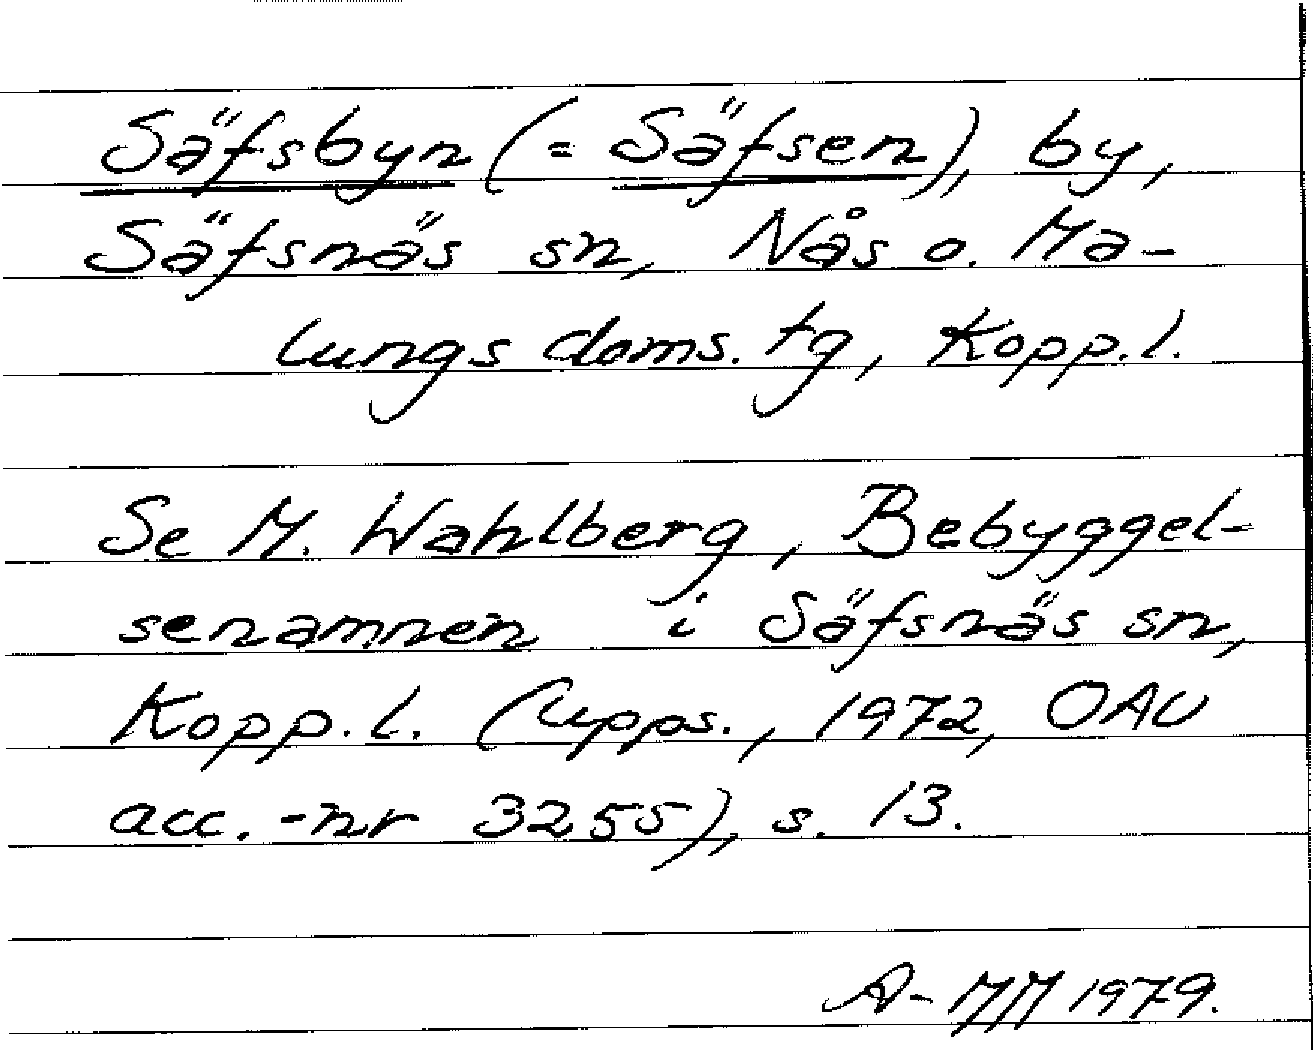 Säfsbyn (= Säfsen), by,
Säfsnäs sn, Nås o. Ma-
lungs doms. tg, Kopp. l.
Se M. Wahlberg, Bebyggel-
senamnen i Säfsnäs sn,
Kopp. l. (Upps., 1972, OAU
acc.-nr 3255), s. 13.
A-MM 1979.